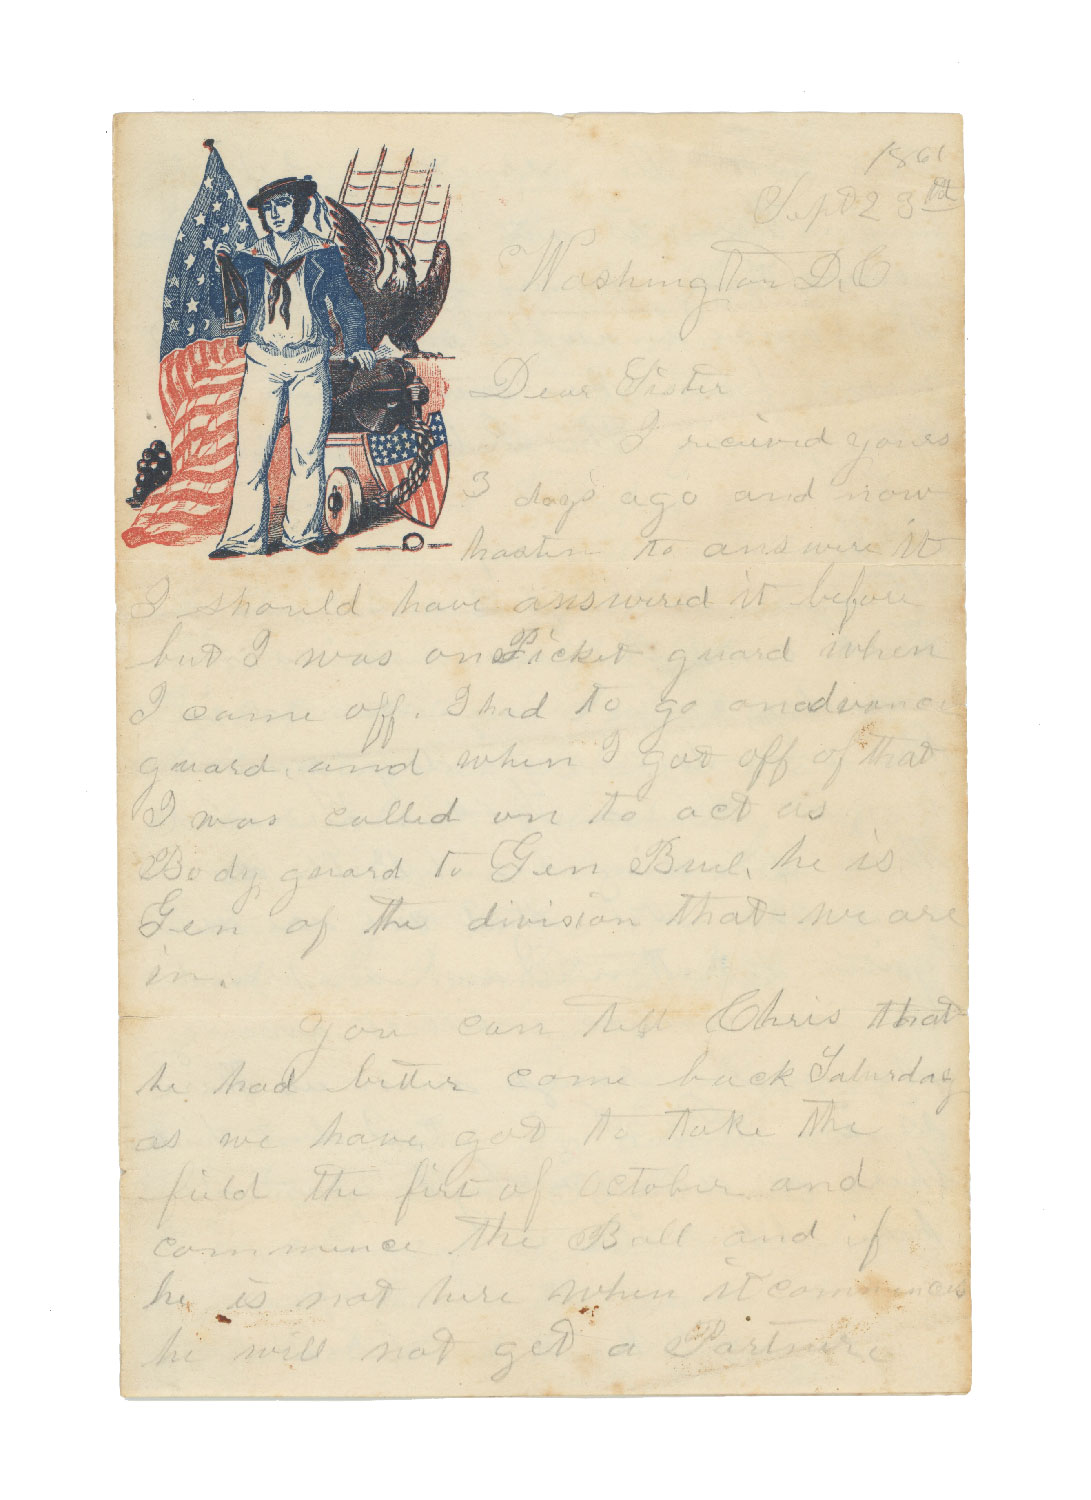 1861
Sept 23rd
Washington D.C
Dear Sister
I recieved yours
3 days ago and now
hasten to answere it
I should have answered it before
but I was on Picket guard when
I came off. I had to go on advance
guard. and when I got off of that
I was called on to act as
Body guard to Gen Buel. he is
Gen of the division that we are
in.
you can tell Chris that
he had better come back Saturday
as we have got to take the
field the first of October and
commence the Ball and if
he is not here when it commences
he will not get a Partner.